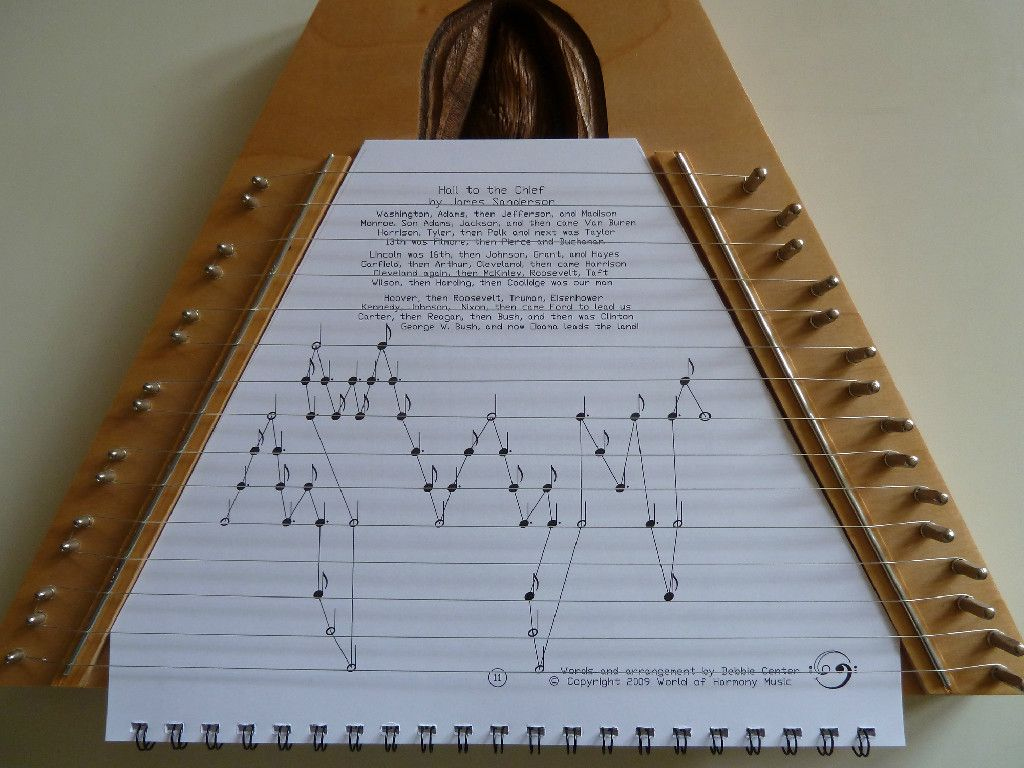 Hail to the Chief
by James Sanderson
Washington, Adams, then Jefferson, and Madison
Monroe, Son Adams, Jackson, and then came Van Buren
Harrison, Tyler, then Polk and next was Taylor
13th was Filmore, then Pierce and Buchanan
Lincoln was 16th, then Johnson, Grant, and Hayes
Garfield, then Arthur, Cleveland, then came Harrison
Cleveland again, then McKinley, Roosevelt, Taft
Wilson, then Harding, then Coolidge was our man
Hoover, then Roosevelt, Truman, Eisenhower
Kennedy, Johnson, Nixon, then came Ford to lead us
Carter, then Reagan, then Bush, and then was Clinton
George W. Bush, and now Obama leads the land!
11
Words and arrangement by Debbie Center
© Copyright 2009 World of Harmony Music